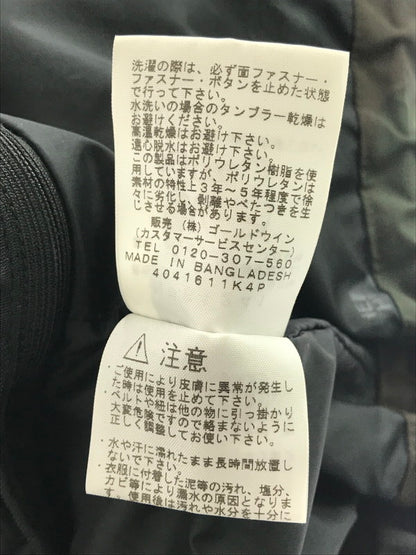 洗濯の際は、必ず面ファスナー・
ファスナー・ボタンを止めた状態
で行って下さい。
水洗いの場合のタンブラー乾燥は
お避けください。
高温乾燥はお避け下さい。
遠心脱水はお避け下さい。
この製品はポリウレタン樹脂を使
用していますが、ポリウレタンは
素材の特性上3年～5年程度で徐
々に劣化し、剥離やべたつきを生
じさせる場合があります。
販売 (株) ゴールドウイン
(カスタマーサービスセンター)
TEL 0120-307-560
MADE IN BANGLADESH
4041611K4P
注意
・ご使用により皮膚に異常が発生し
た時は使用を止めて下さい。
・ベルトや紐は他の物に引っ掛かり
大変危険ですので絡まないように
正しく調整してお使い下さい。
・水や汗に濡れたまま長時間放置し
ないで下さい。
・衣服に付着した泥等の汚れ、塩分、
カビ等により漏水の原因となりま
す。使用後は汚れや水分を十分に